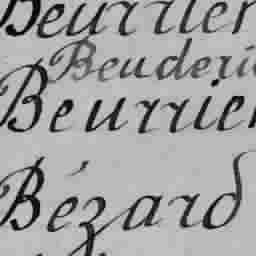 Beurrier
Beuderi
Beurrier
Bézard